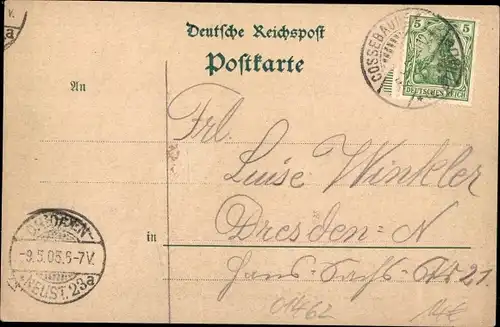 Deutsche Reichspost
Postkarte
COSSEBAUDE
5 5
DEUTSCHES REICH
An
Frl.
Luise Winkler
Dresden-N
in
Hans-Sachs-Str 21.
DRESDEN-
-9.5.05.6-7V.
NEUST. 23a
01462
V.
a